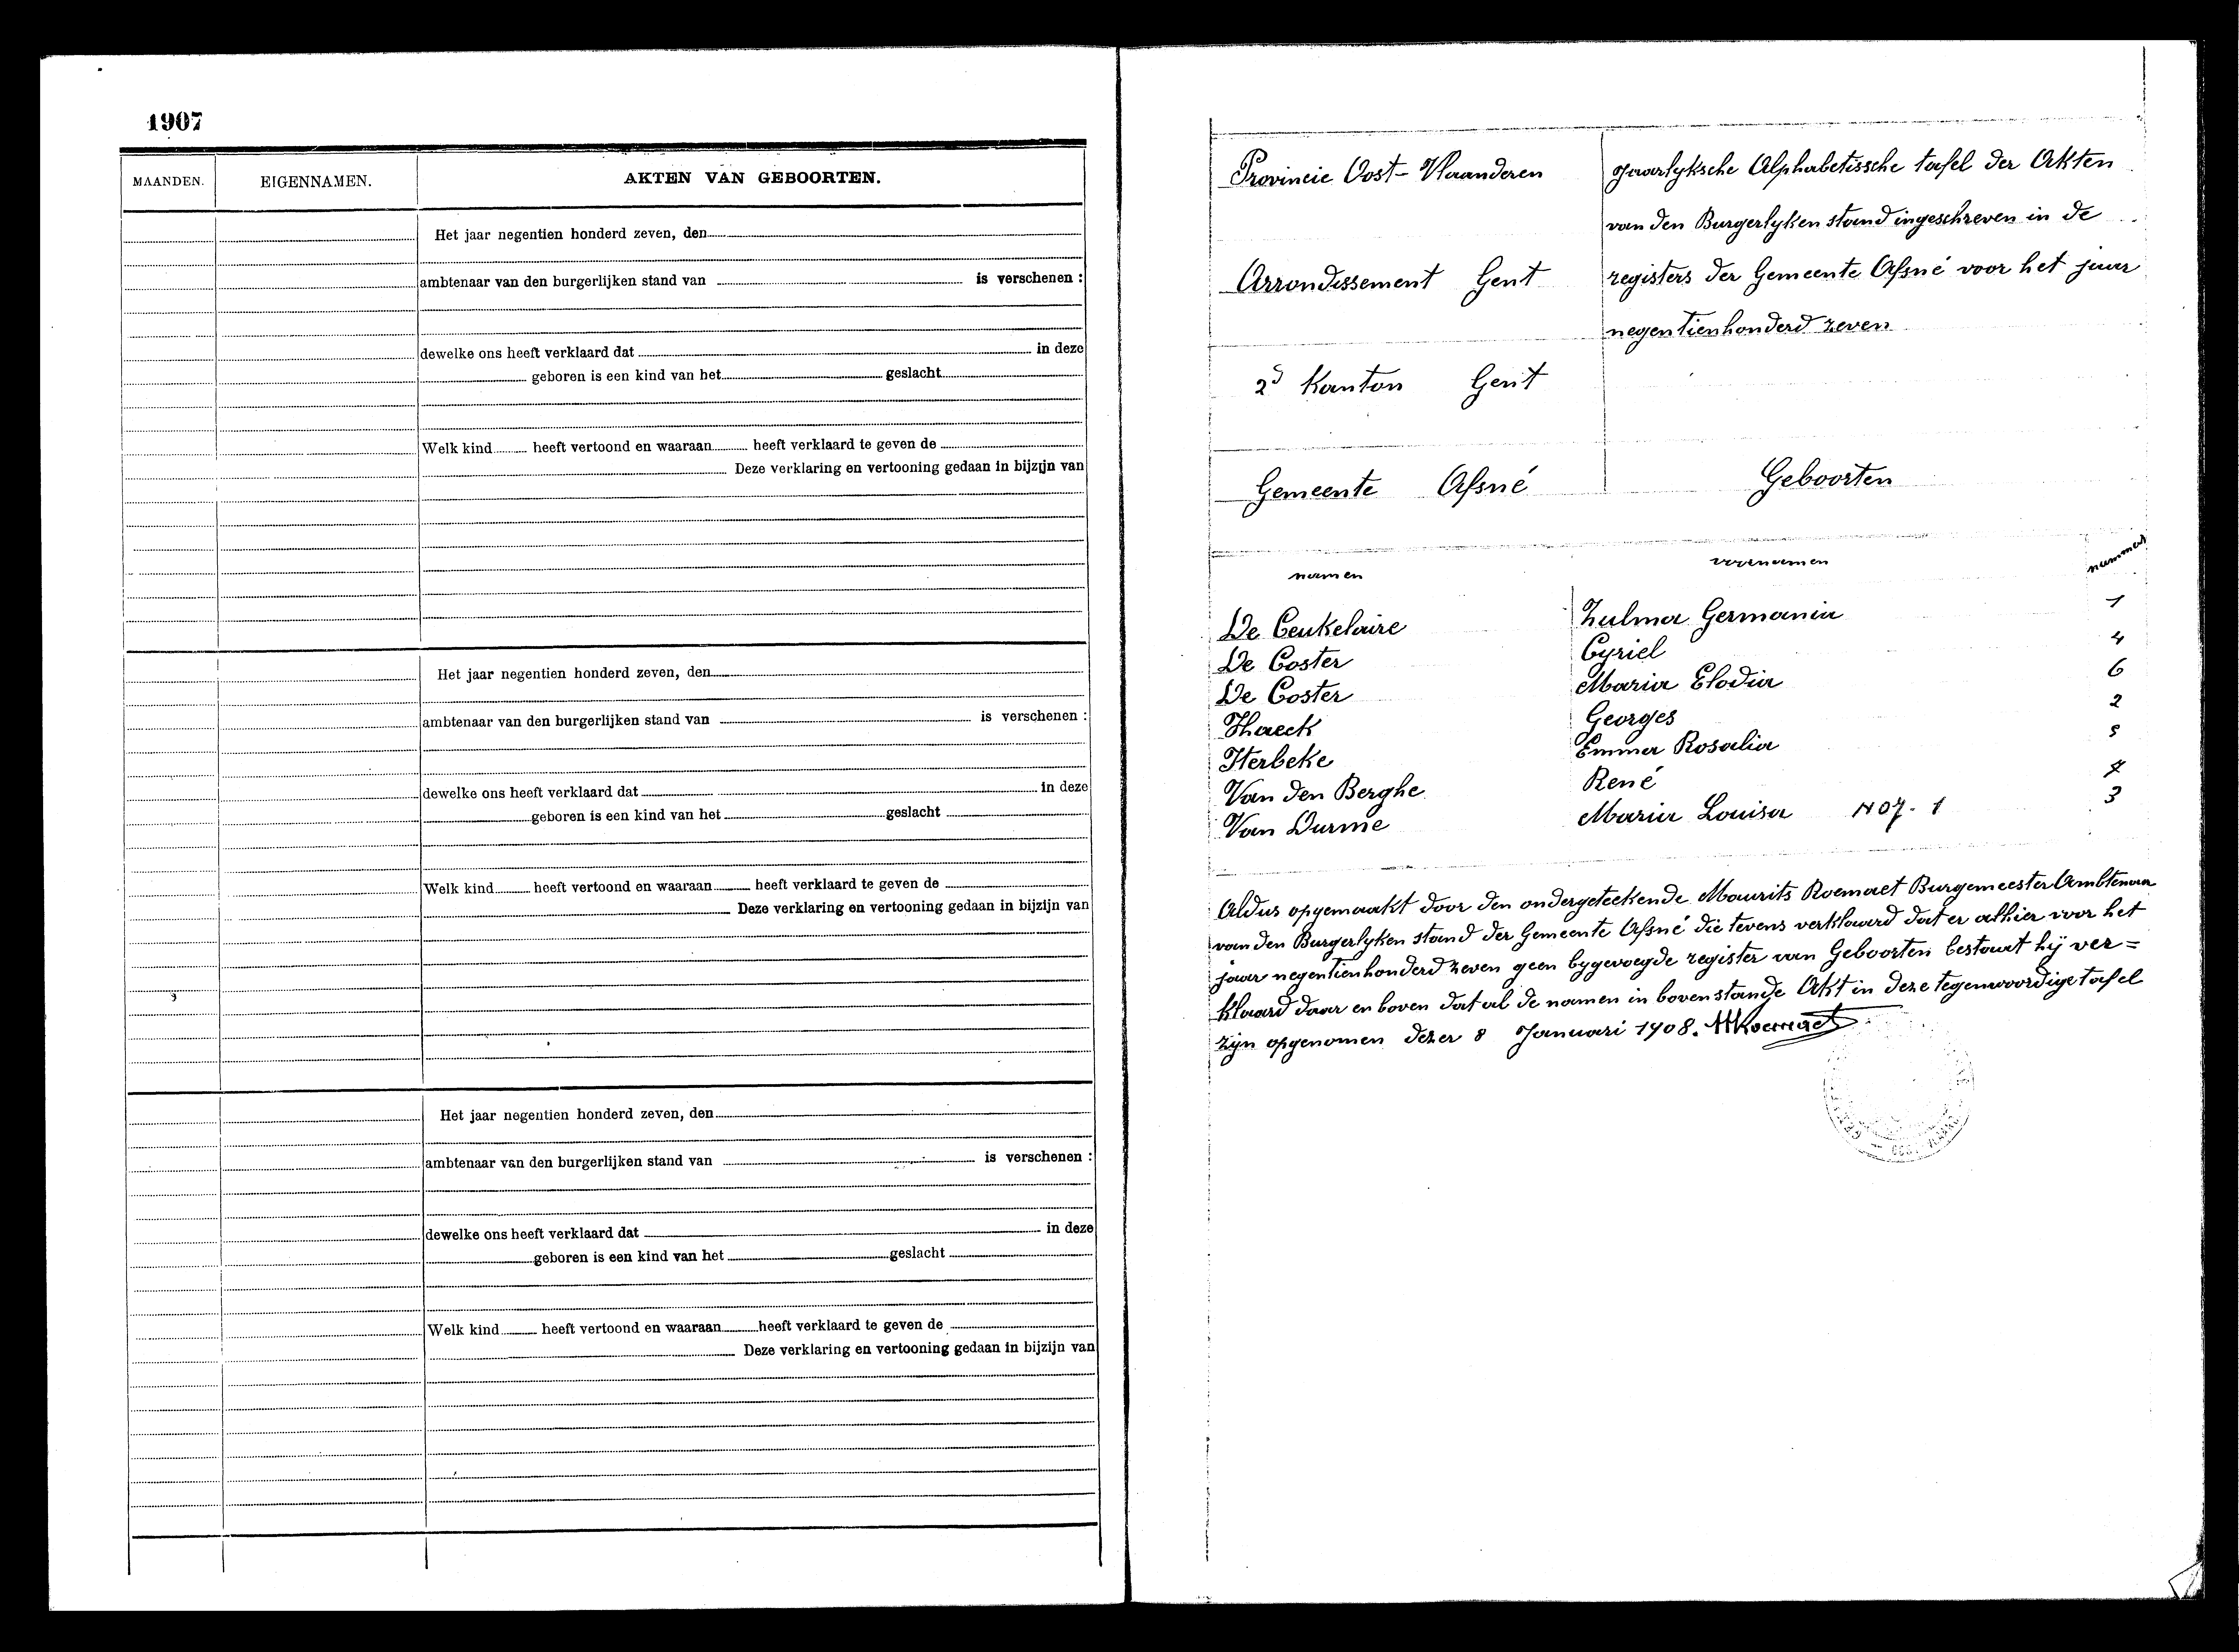 1907
MAANDEN. EIGENNAMEN. AKTEN VAN GEBOORTEN.
Het jaar negentien honderd zeven, den
ambtenaar van den burgerlijken stand van is verschenen :
dewelke ons heeft verklaard dat in deze
geboren is een kind van het geslacht
Welk kind heeft vertoond en waaraan heeft verklaard te geven de
Deze verklaring en vertooning gedaan in bijzijn van
Het jaar negentien honderd zeven, den
ambtenaar van den burgerlijken stand van is verschenen :
dewelke ons heeft verklaard dat in deze
geboren is een kind van het geslacht
Welk kind heeft vertoond en waaraan heeft verklaard te geven de
Deze verklaring en vertooning gedaan in bijzijn van
Het jaar negentien honderd zeven, den
ambtenaar van den burgerlijken stand van is verschenen :
dewelke ons heeft verklaard dat in deze
geboren is een kind van het geslacht
Welk kind heeft vertoond en waaraan heeft verklaard te geven de
Deze verklaring en vertooning gedaan in bijzijn van
Provincie Oost-Vlaanderen
Arrondissement Gent
2d Kanton Gent
Gemeente Afsné
Jaarlyksche Alphabetissche tafel der Akten
van den Burgerlyken stand ingeschreven in de
registers der Gemeente Afsné voor het jaar
negentienhonderd zeven
Geboorten
namen voornamen nummer
De Ceukelaire Zulma Germania 1
De Coster Cyriel 4
De Coster Maria Elodia 6
Haeck Georges 2
Herbeke Emma Rosalia 5
Van den Berghe René 7
Van Durme Maria Louisa 1907-1 3
Aldus opgemaakt door den ondergeteekende Maurits Roemaet Burgemeester Ambtenaar
van den Burgerlyken stand der Gemeente Afsné die tevens verklaard dat er alhier voor het
jaar negentienhonderd zeven geen bygevoegde register van Geboorten bestaat hij ver=
klaard daar en boven dat al de namen in bovenstande Akt in deze tegenwoordige tafel
zijn opgenomen dezer 8 Januari 1908. MRoemaet